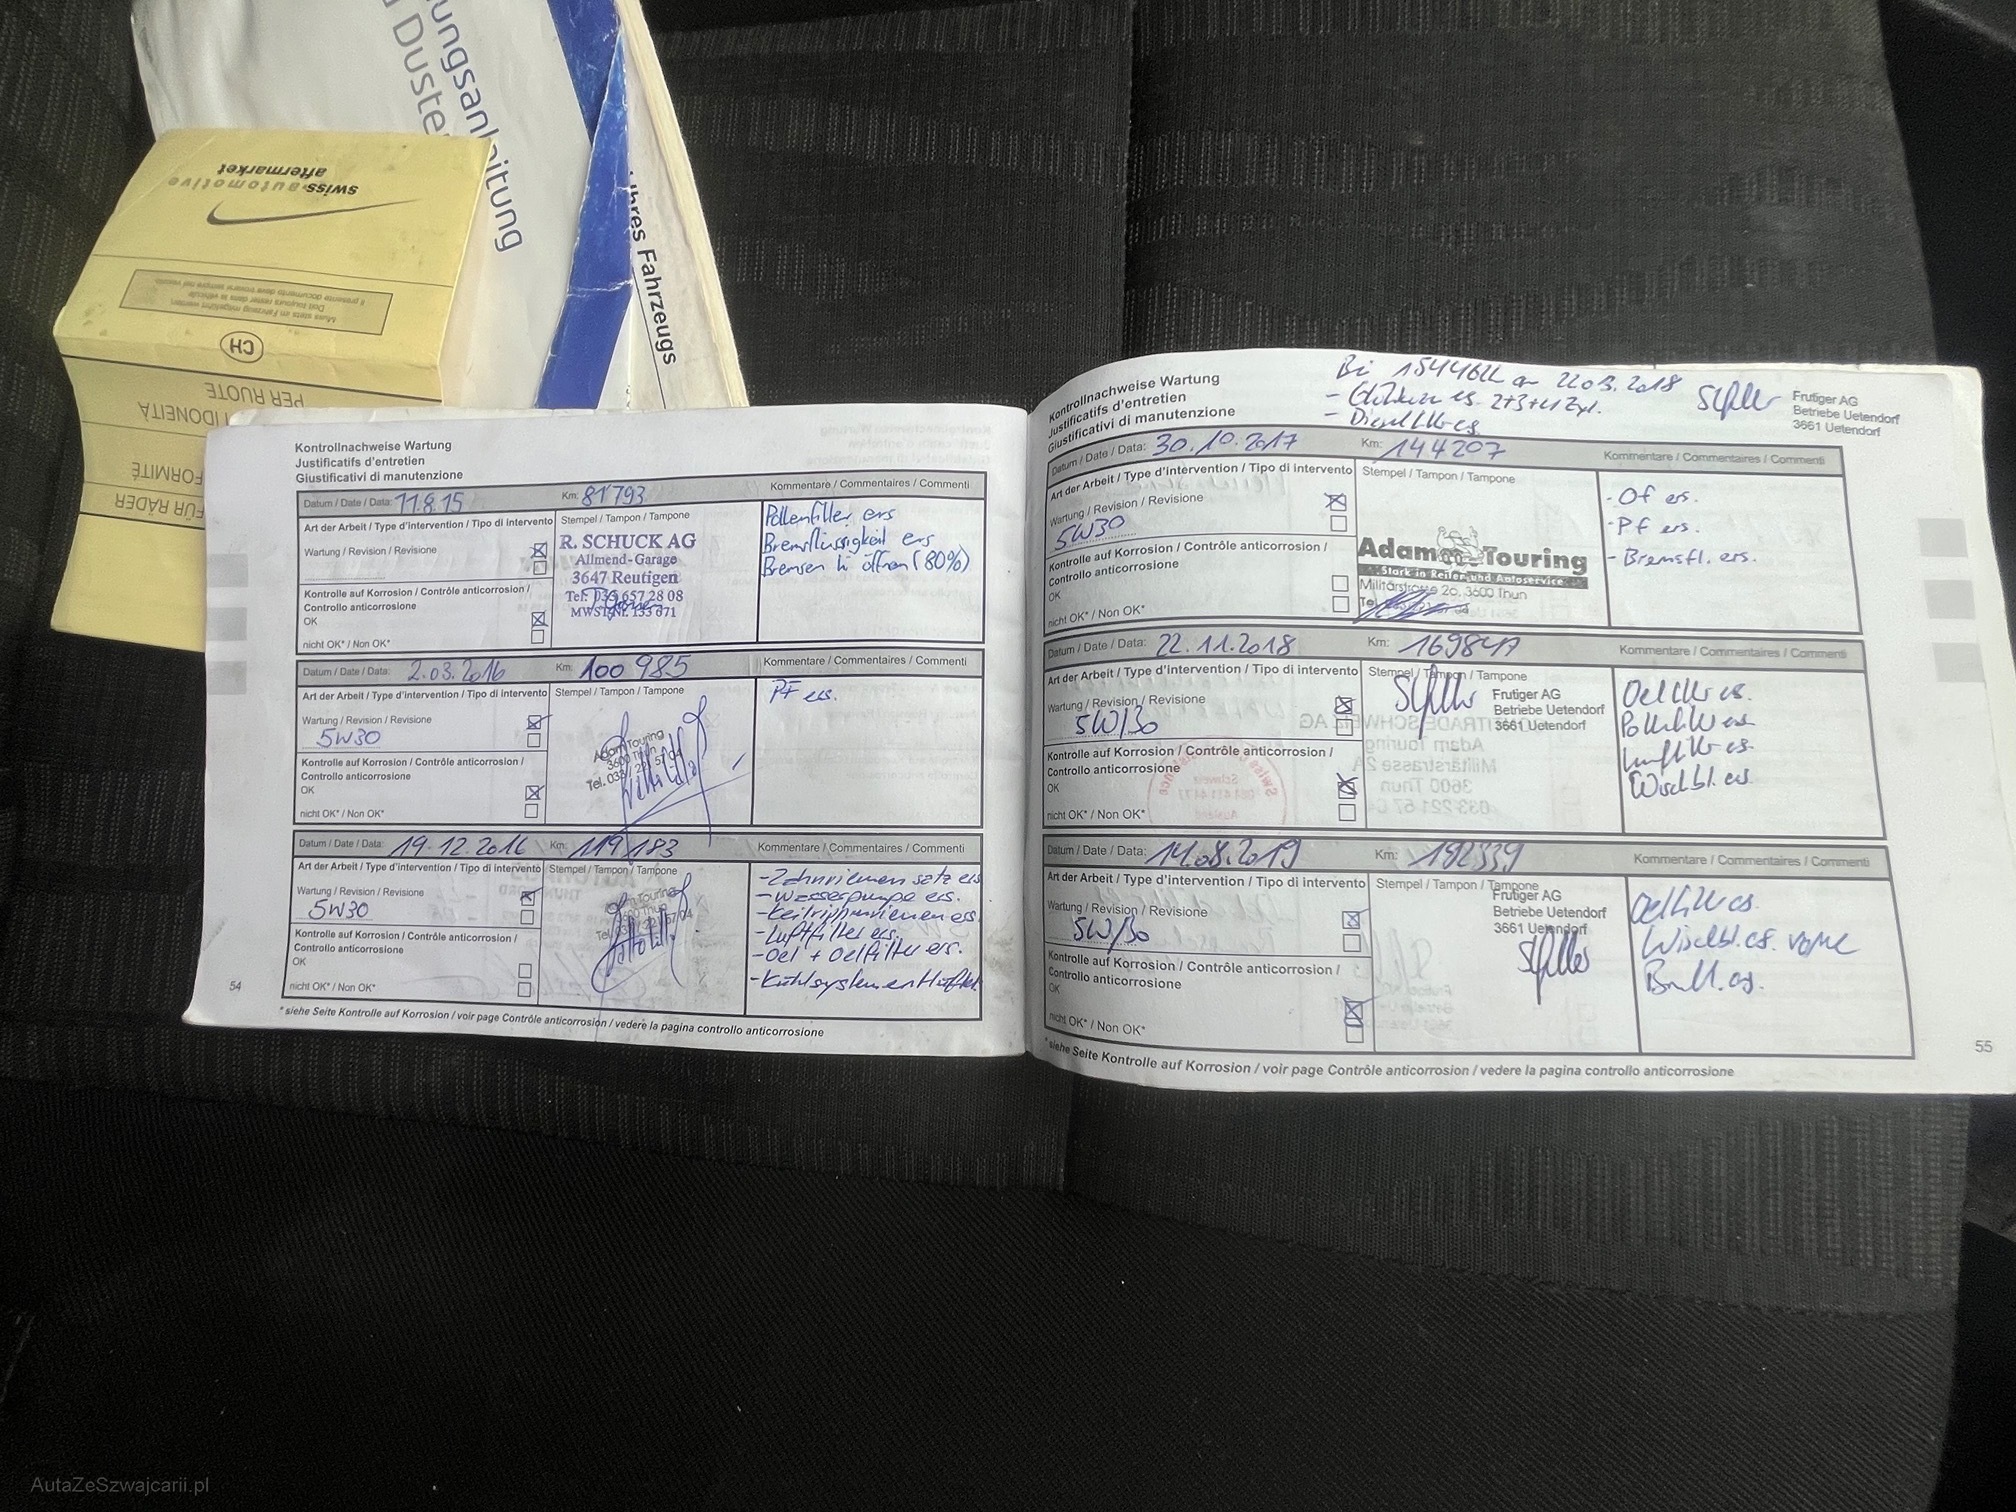 ungsanleitung
Duste
Ihres Fahrzeugs
swiss automotive
aftermarket
Muss stets im Fahrzeug mitgeführt werden
Doit toujours rester dans le véhicule
Il presente documento deve trovarsi sempre nel veicolo
CH
PER RUOTE
IDONEITÀ
FORMITÉ
FÜR RÄDER
Kontrollnachweise Wartung
Justificatifs d'entretien
Giustificativi di manutenzione
Datum / Date / Data: 11.8.15 Km: 81'793 Kommentare / Commentaires / Commenti
Art der Arbeit / Type d'intervention / Tipo di intervento Stempel / Tampon / Tampone
Wartung / Revision / Revisione
Kontrolle auf Korrosion / Contrôle anticorrosion /
Controllo anticorrosione
OK
nicht OK* / Non OK*
R. SCHUCK AG
Allmend-Garage
3647 Reutigen
Tel: 033 657 28 08
MWST-Nr. 133 671
Pollenfilter ers
Bremsflüssigkeit ers
Bremsen hi öffnen (80%)
Datum / Date / Data: 2.03.2016 Km: 100 985 Kommentare / Commentaires / Commenti
Art der Arbeit / Type d'intervention / Tipo di intervento Stempel / Tampon / Tampone
Wartung / Revision / Revisione
5W30
Kontrolle auf Korrosion / Contrôle anticorrosion /
Controllo anticorrosione
OK
nicht OK* / Non OK*
Adam Touring
3600 Thun
Tel. 033 / 221 57 04
PF ers.
Datum / Date / Data: 19.12.2016 Km: 119 183 Kommentare / Commentaires / Commenti
Art der Arbeit / Type d'intervention / Tipo di intervento Stempel / Tampon / Tampone
Wartung / Revision / Revisione
5W30
Kontrolle auf Korrosion / Contrôle anticorrosion /
Controllo anticorrosione
OK
nicht OK* / Non OK*
Adam Touring
3600 Thun
Tel. 033 / 221 57 04
- Zahnriemensatz ers
- Wasserpumpe ers.
- Keilrippenriemen ers
- Luftfilter ers.
- Oel + Oelfilter ers.
- Kühlsystem entlüftet
* siehe Seite Kontrolle auf Korrosion / voir page Contrôle anticorrosion / vedere la pagina controllo anticorrosione
54
Bei 154462 am 22.03.2018
- Glühkerze es. 2+3+4 Zyl.
- Dieselfilter es.
Frutiger AG
Betriebe Uetendorf
3661 Uetendorf
Kontrollnachweise Wartung
Justificatifs d'entretien
Giustificativi di manutenzione
Datum / Date / Data: 30.10.2017 Km: 144207 Kommentare / Commentaires / Commenti
Art der Arbeit / Type d'intervention / Tipo di intervento Stempel / Tampon / Tampone
Wartung / Revision / Revisione
5W30
Kontrolle auf Korrosion / Contrôle anticorrosion /
Controllo anticorrosione
OK
nicht OK* / Non OK*
Adam Touring
Stark in Reifen und Autoservice
Militärstrasse 2a, 3600 Thun
Tel.
- Of ers.
- Pf ers.
- Bremsfl. ers.
Datum / Date / Data: 22.11.2018 Km: 169847 Kommentare / Commentaires / Commenti
Art der Arbeit / Type d'intervention / Tipo di intervento Stempel / Tampon / Tampone
Wartung / Revision / Revisione
5W/30
Kontrolle auf Korrosion / Contrôle anticorrosion /
Controllo anticorrosione
OK
nicht OK* / Non OK*
Frutiger AG
Betriebe Uetendorf
3661 Uetendorf
Oelfilter es.
Pollenfilter es
Luftfilter es.
Wischbl. es.
Datum / Date / Data: 14.08.2019 Km: 192339 Kommentare / Commentaires / Commenti
Art der Arbeit / Type d'intervention / Tipo di intervento Stempel / Tampon / Tampone
Wartung / Revision / Revisione
5W/30
Kontrolle auf Korrosion / Contrôle anticorrosion /
Controllo anticorrosione
OK
nicht OK* / Non OK*
Frutiger AG
Betriebe Uetendorf
3661 Uetendorf
Oelfilter es.
Wischbl. es. vorne
* siehe Seite Kontrolle auf Korrosion / voir page Contrôle anticorrosion / vedere la pagina controllo anticorrosione
55
AutaZeSzwajcarii.pl